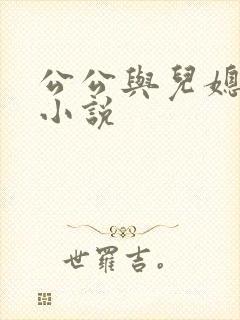 公公與兒媳
小說
世羅吉。